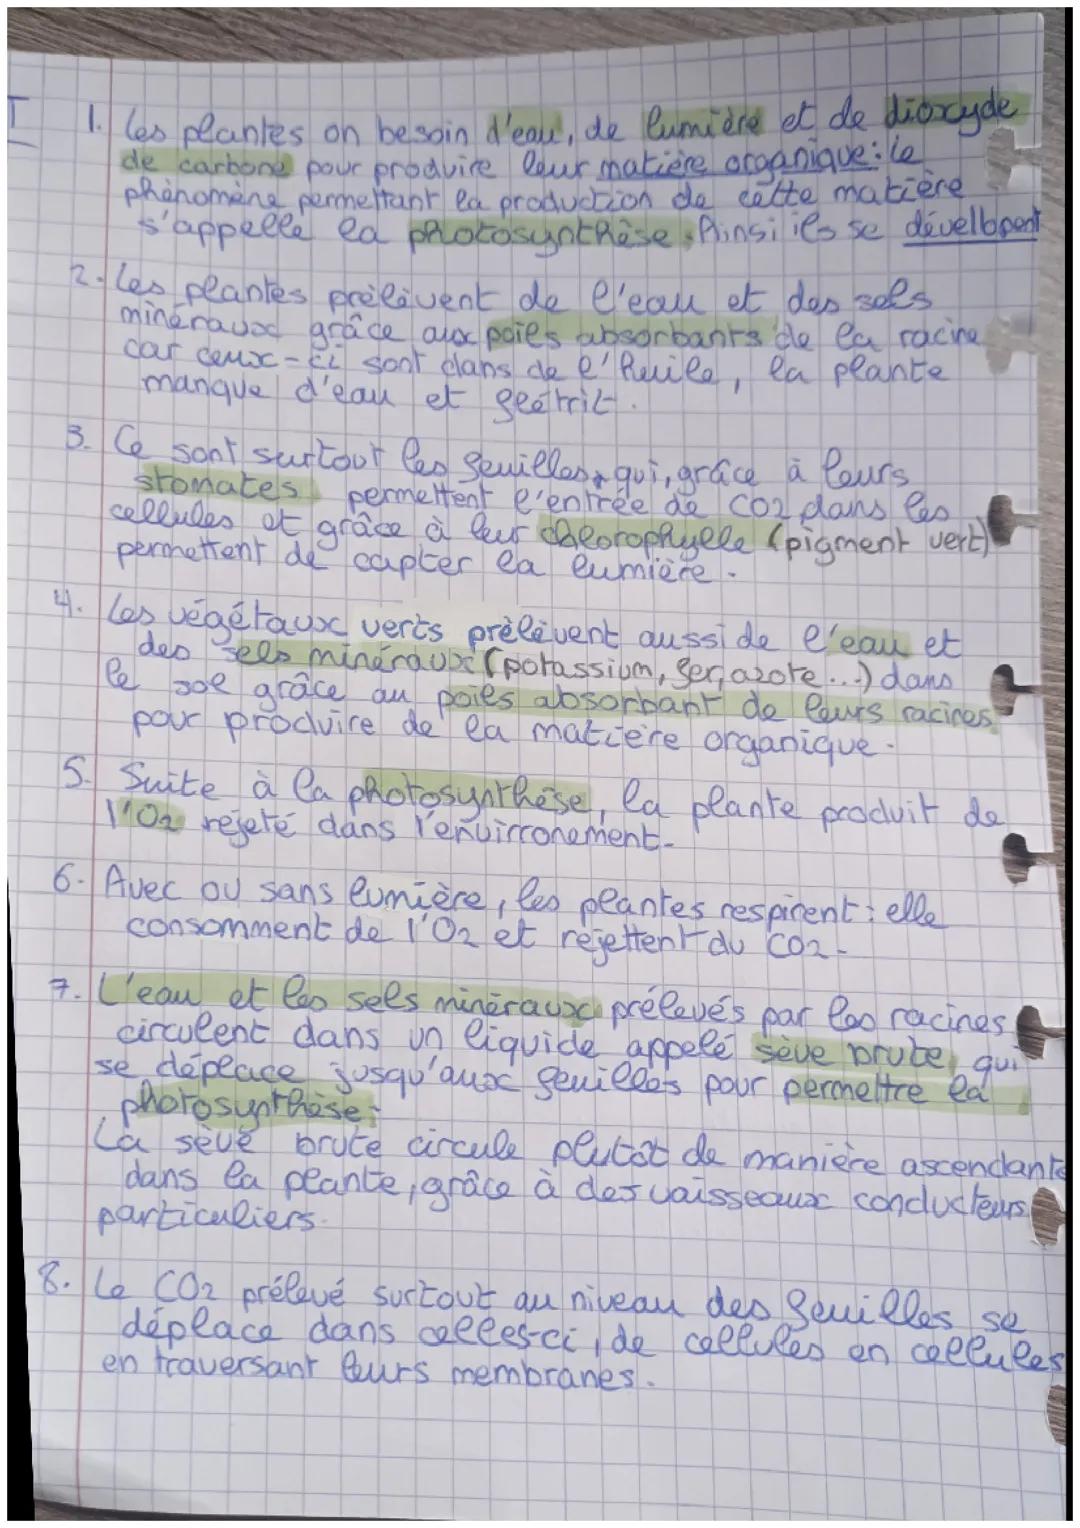 I 1. Les plantes on besoin d'eau, de lumière et de dioxyde
de carbone pour produire leur matière organique : le
phénomène permettant la production de cette matière
s'appelle la photosynthèse. Ainsi ils se dévellopent
2. Les plantes prélèvent de l'eau et des sels
minéraux grâce aux poils absorbants de la racine
car ceux-ci sont dans de l'huile, la plante
manque d'eau et flétrit.
3. Ce sont surtout les feuilles, qui, grâce à leurs
stomates permettent l'entrée de CO2 dans les
cellules et grâce à leur chlorophylle (pigment vert)
permettent de capter la lumière.
4. Les végétaux verts prélèvent aussi de l'eau et
des sels minéraux (potassium, fer, azote...) dans
le sol grâce au poils absorbant de leurs racines
pour produire de la matière organique.
5. Suite à la photosynthèse, la plante produit de
l'O2 rejeté dans l'envirronement.
6. Avec ou sans lumière, les plantes respirent : elle
consomment de l'O2 et rejettent du CO2.
7. L'eau et les sels minéraux prélevés par les racines
circulent dans un liquide appelé sève brute, qui
se déplace jusqu'aux feuilles pour permettre la
photosynthèse.
La sève brute circule plutôt de manière ascendante
dans la plante, grâce à des vaisseaux conducteurs
particuliers.
8. Le CO2 prélevé surtout au niveau des feuilles se
déplace dans celles-ci, de cellules en cellules
en traversant leurs membranes.